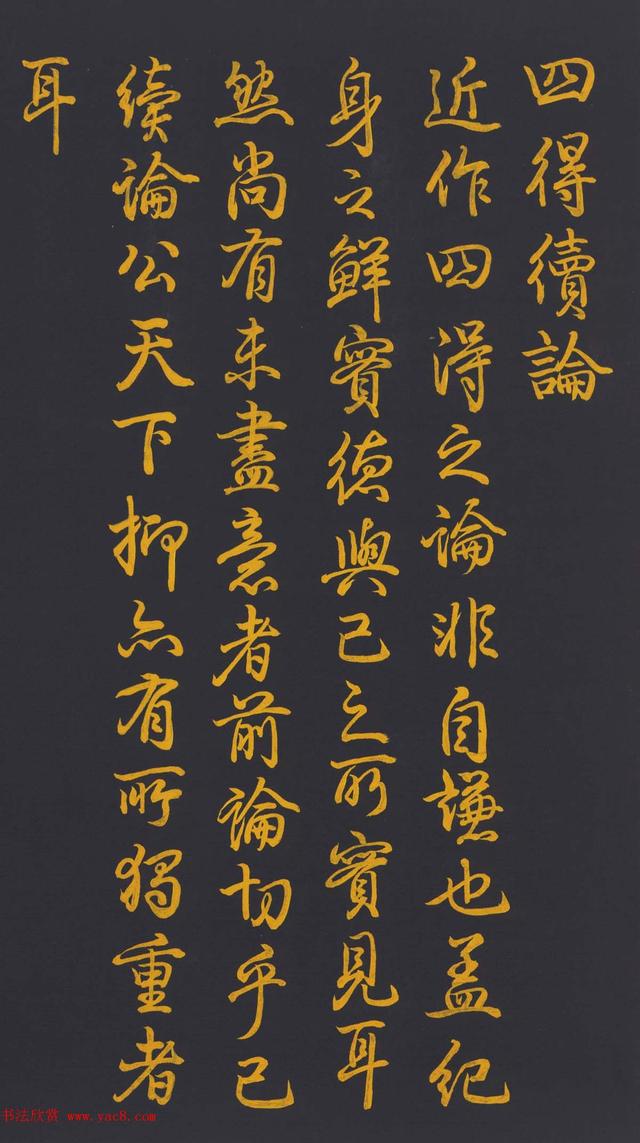 四得續論
近作四得之論非自謙也蓋紀
身之鮮實德與己之所實見耳
然尚有未盡意者前論切乎己
續論公天下抑亦有所獨重者
耳
书法欣赏 www.yac8.com